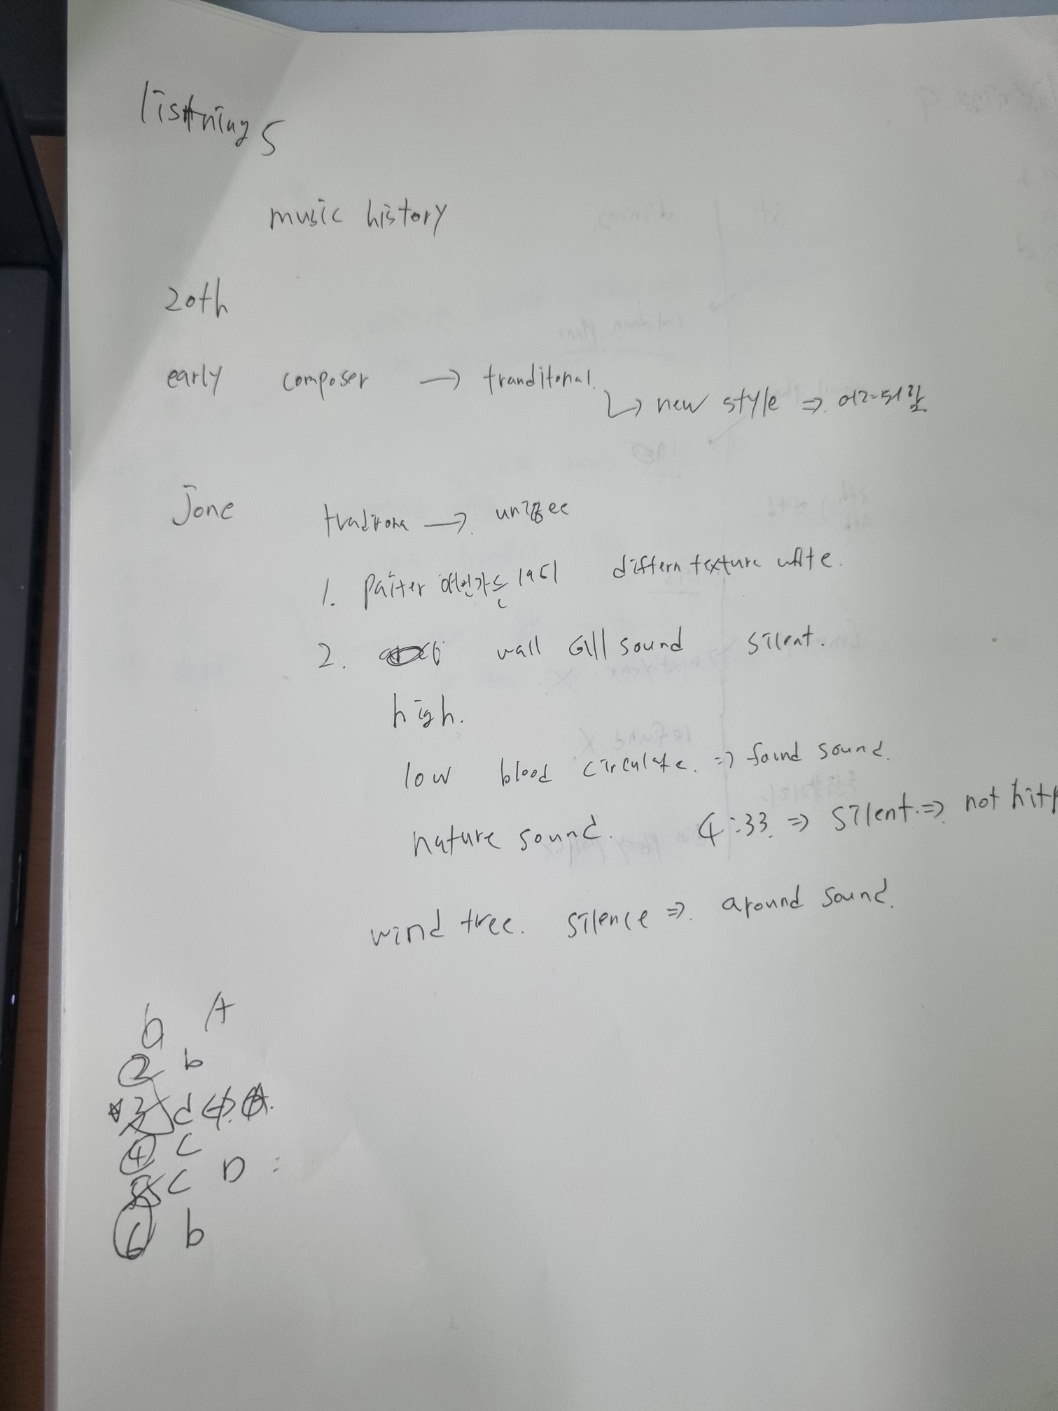 listning 5
music history
20th
early composer → tranditonal.
↳ new style ⇒
Jone traditona →
1. Paiter 1961 differn texture
2. wall all sound silent.
high.
low blood circulate. ⇒ found sound.
nature sound. 4:33. ⇒ silent. ⇒ not
wind tree. silence ⇒. around sound.
A
② b
3 d
④ c
5 c D :
⑥ b